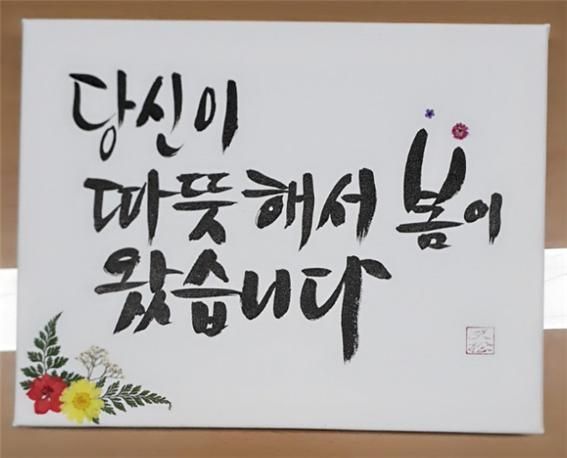 당신이
따뜻해서 봄이
왔습니다